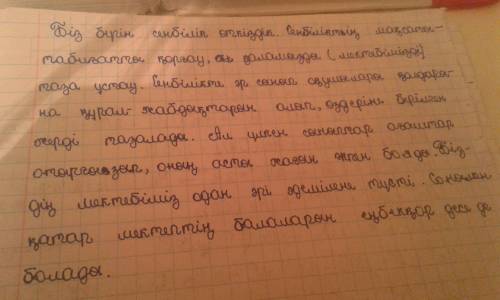 Біз бүгін сенбілік өткіздік. Сенбіліктің мақсаты-
табиғатты қорғау, өз даламызды (мектебімізді)
таза ұстау. Сенбілікте әр сынып оқушылары қолдары-
на құрал-жабдықтарын алып, өздеріне берілген
жерді тазалады. Ал үлкен сыныптар ағаштар
отырғызып, оның асты жағын әкпен бояды. Біз-
дің мектебіміз одан әрі әдемілене түсті. Сонымен
қатар мектептің балаларын еңбекқор десе де
болады.